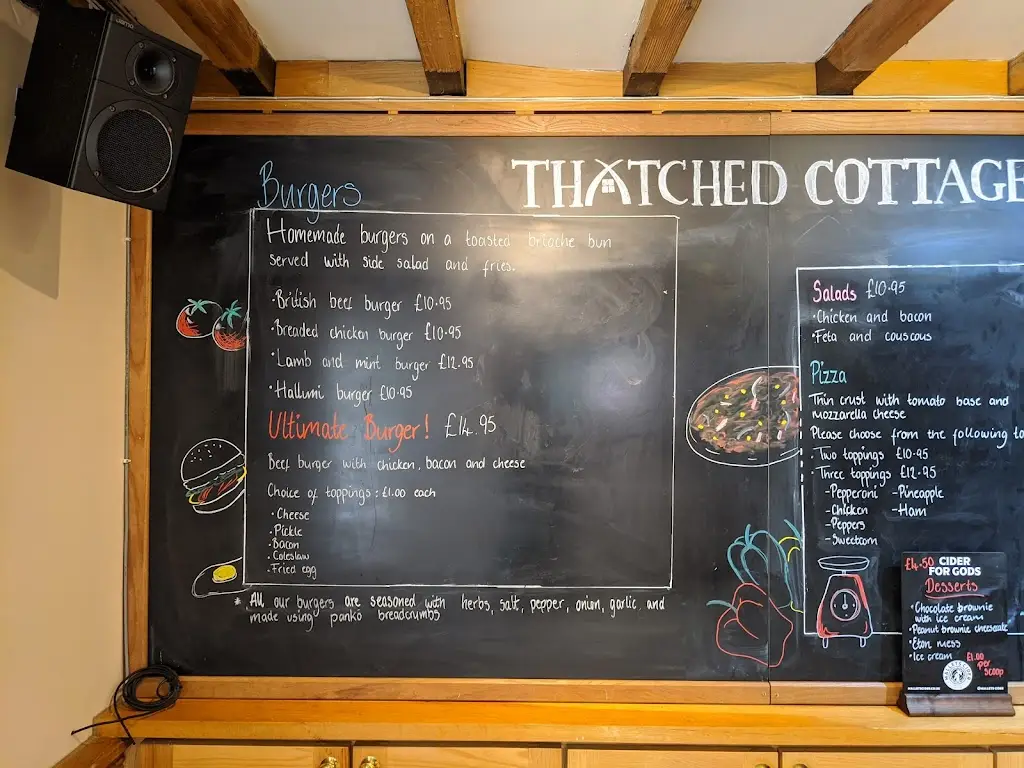 THATCHED COTTAGE
Burgers
Homemade burgers on a toasted brioche bun
served with side salad and fries.
·British beef burger £10.95
·Breaded chicken burger £10.95
·Lamb and mint burger £12.95
·Hallumi burger £10.95
Ultimate Burger! £14.95
Beef burger with chicken, bacon and cheese
Choice of toppings : £1.00 each
·Cheese
·Pickle
·Bacon
·Coleslaw
·Fried egg
* All our burgers are seasoned with herbs, salt, pepper, onion, garlic and
made using panko breadcrumbs
Salads £10.95
·Chicken and bacon
·Feta and couscous
Pizza
Thin crust with tomato base and
mozzarella cheese
Please choose from the following to
·Two toppings £10.95
·Three toppings £12.95
-Pepperoni -Pineapple
-Chicken -Ham
-Peppers
-Sweetcorn
£4.50 CIDER
FOR GODS
Desserts
·Chocolate brownie
with ice cream
·Peanut brownie cheesecake
·Eton mess
·Ice cream £1.00
per
scoop